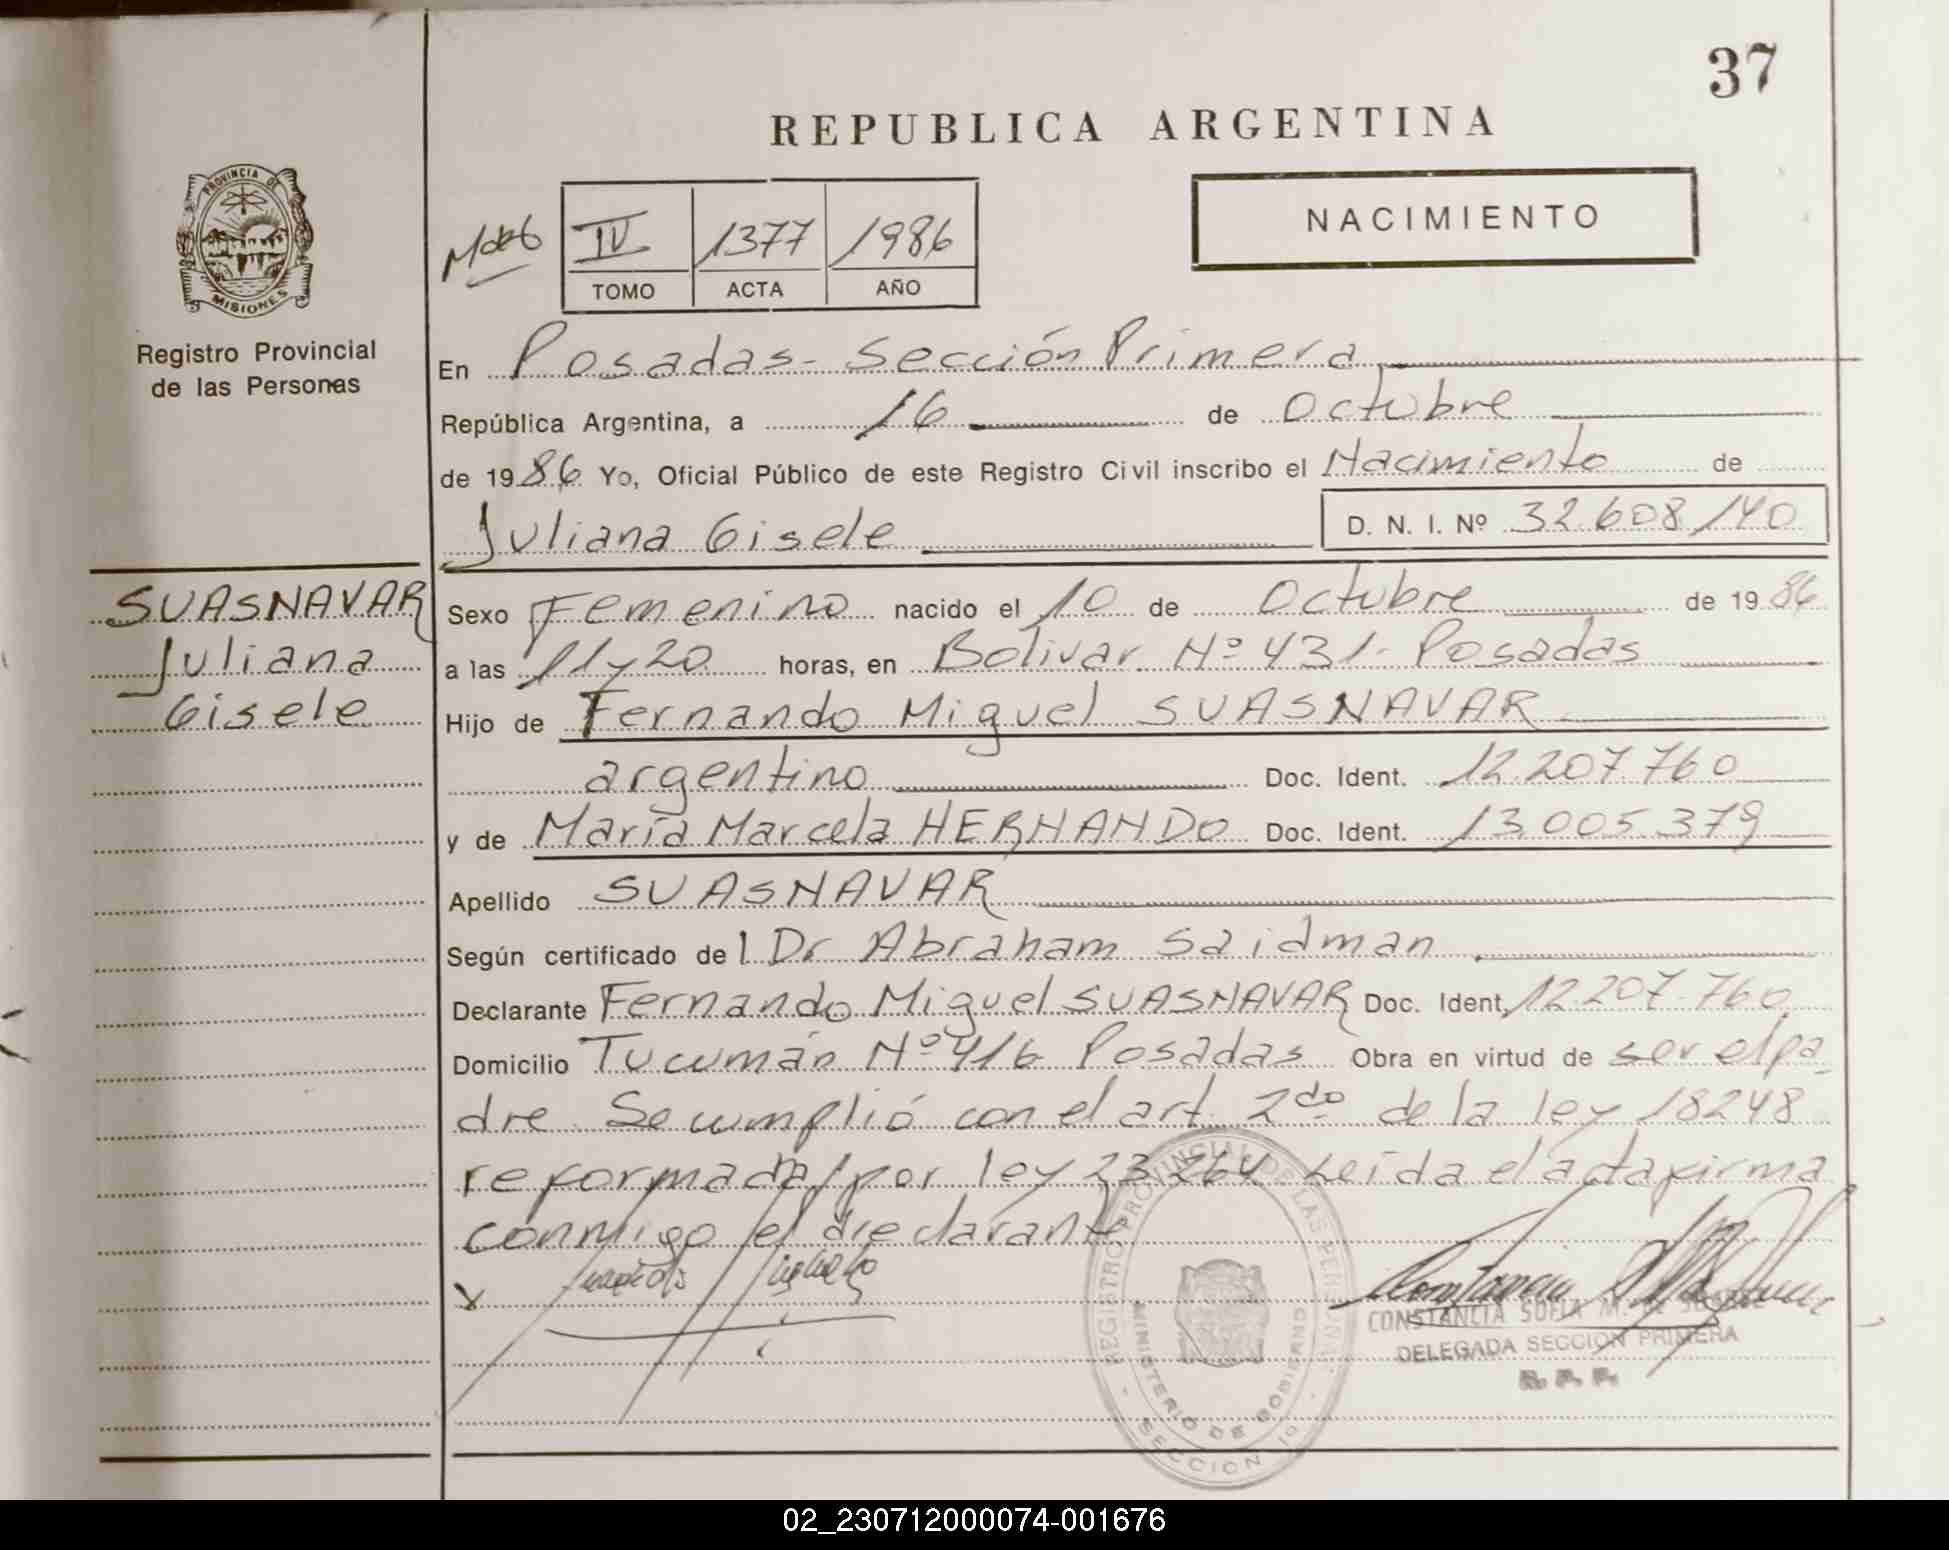 37
REPUBLICA ARGENTINA
PROVINCIA DE
MISIONES
Registro Provincial
de las Personas
NACIMIENTO
IV 1377 1986
TOMO ACTA AÑO
En Posadas - Sección Primera
República Argentina, a 16 de Octubre
de 1986 Yo, Oficial Público de este Registro Civil inscribo el Nacimiento de
Juliana Gisele D. N. I. Nº 32.608.140
SUASNAVAR
Juliana
Gisele
Sexo Femenino nacido el 10 de Octubre de 1986
a las 11 y 20 horas, en Bolivar Nº 431. Posadas
Hijo de Fernando Miguel SUASNAVAR
argentino Doc. Ident. 12.207.760
y de María Marcela HERNANDO Doc. Ident. 13.005.379
Apellido SUASNAVAR
Según certificado del Dr Abraham Saidman
Declarante Fernando Miguel SUASNAVAR Doc. Ident. 12.207.760
Domicilio Tucumán Nº 416 Posadas Obra en virtud de ser el pa
dre. Se cumplió con el art. 2do de la ley 18248
reformada por ley 23.264. Leída el acta firma
conmigo el declarante
REGISTRO PROVINCIAL DE LAS PERSONAS
MINISTERIO DE GOBIERNO
SECCION 1º
CONSTANCIA SOFIA M. DE
DELEGADA SECCION PRIMERA
R. P. P.
02_230712000074-001676